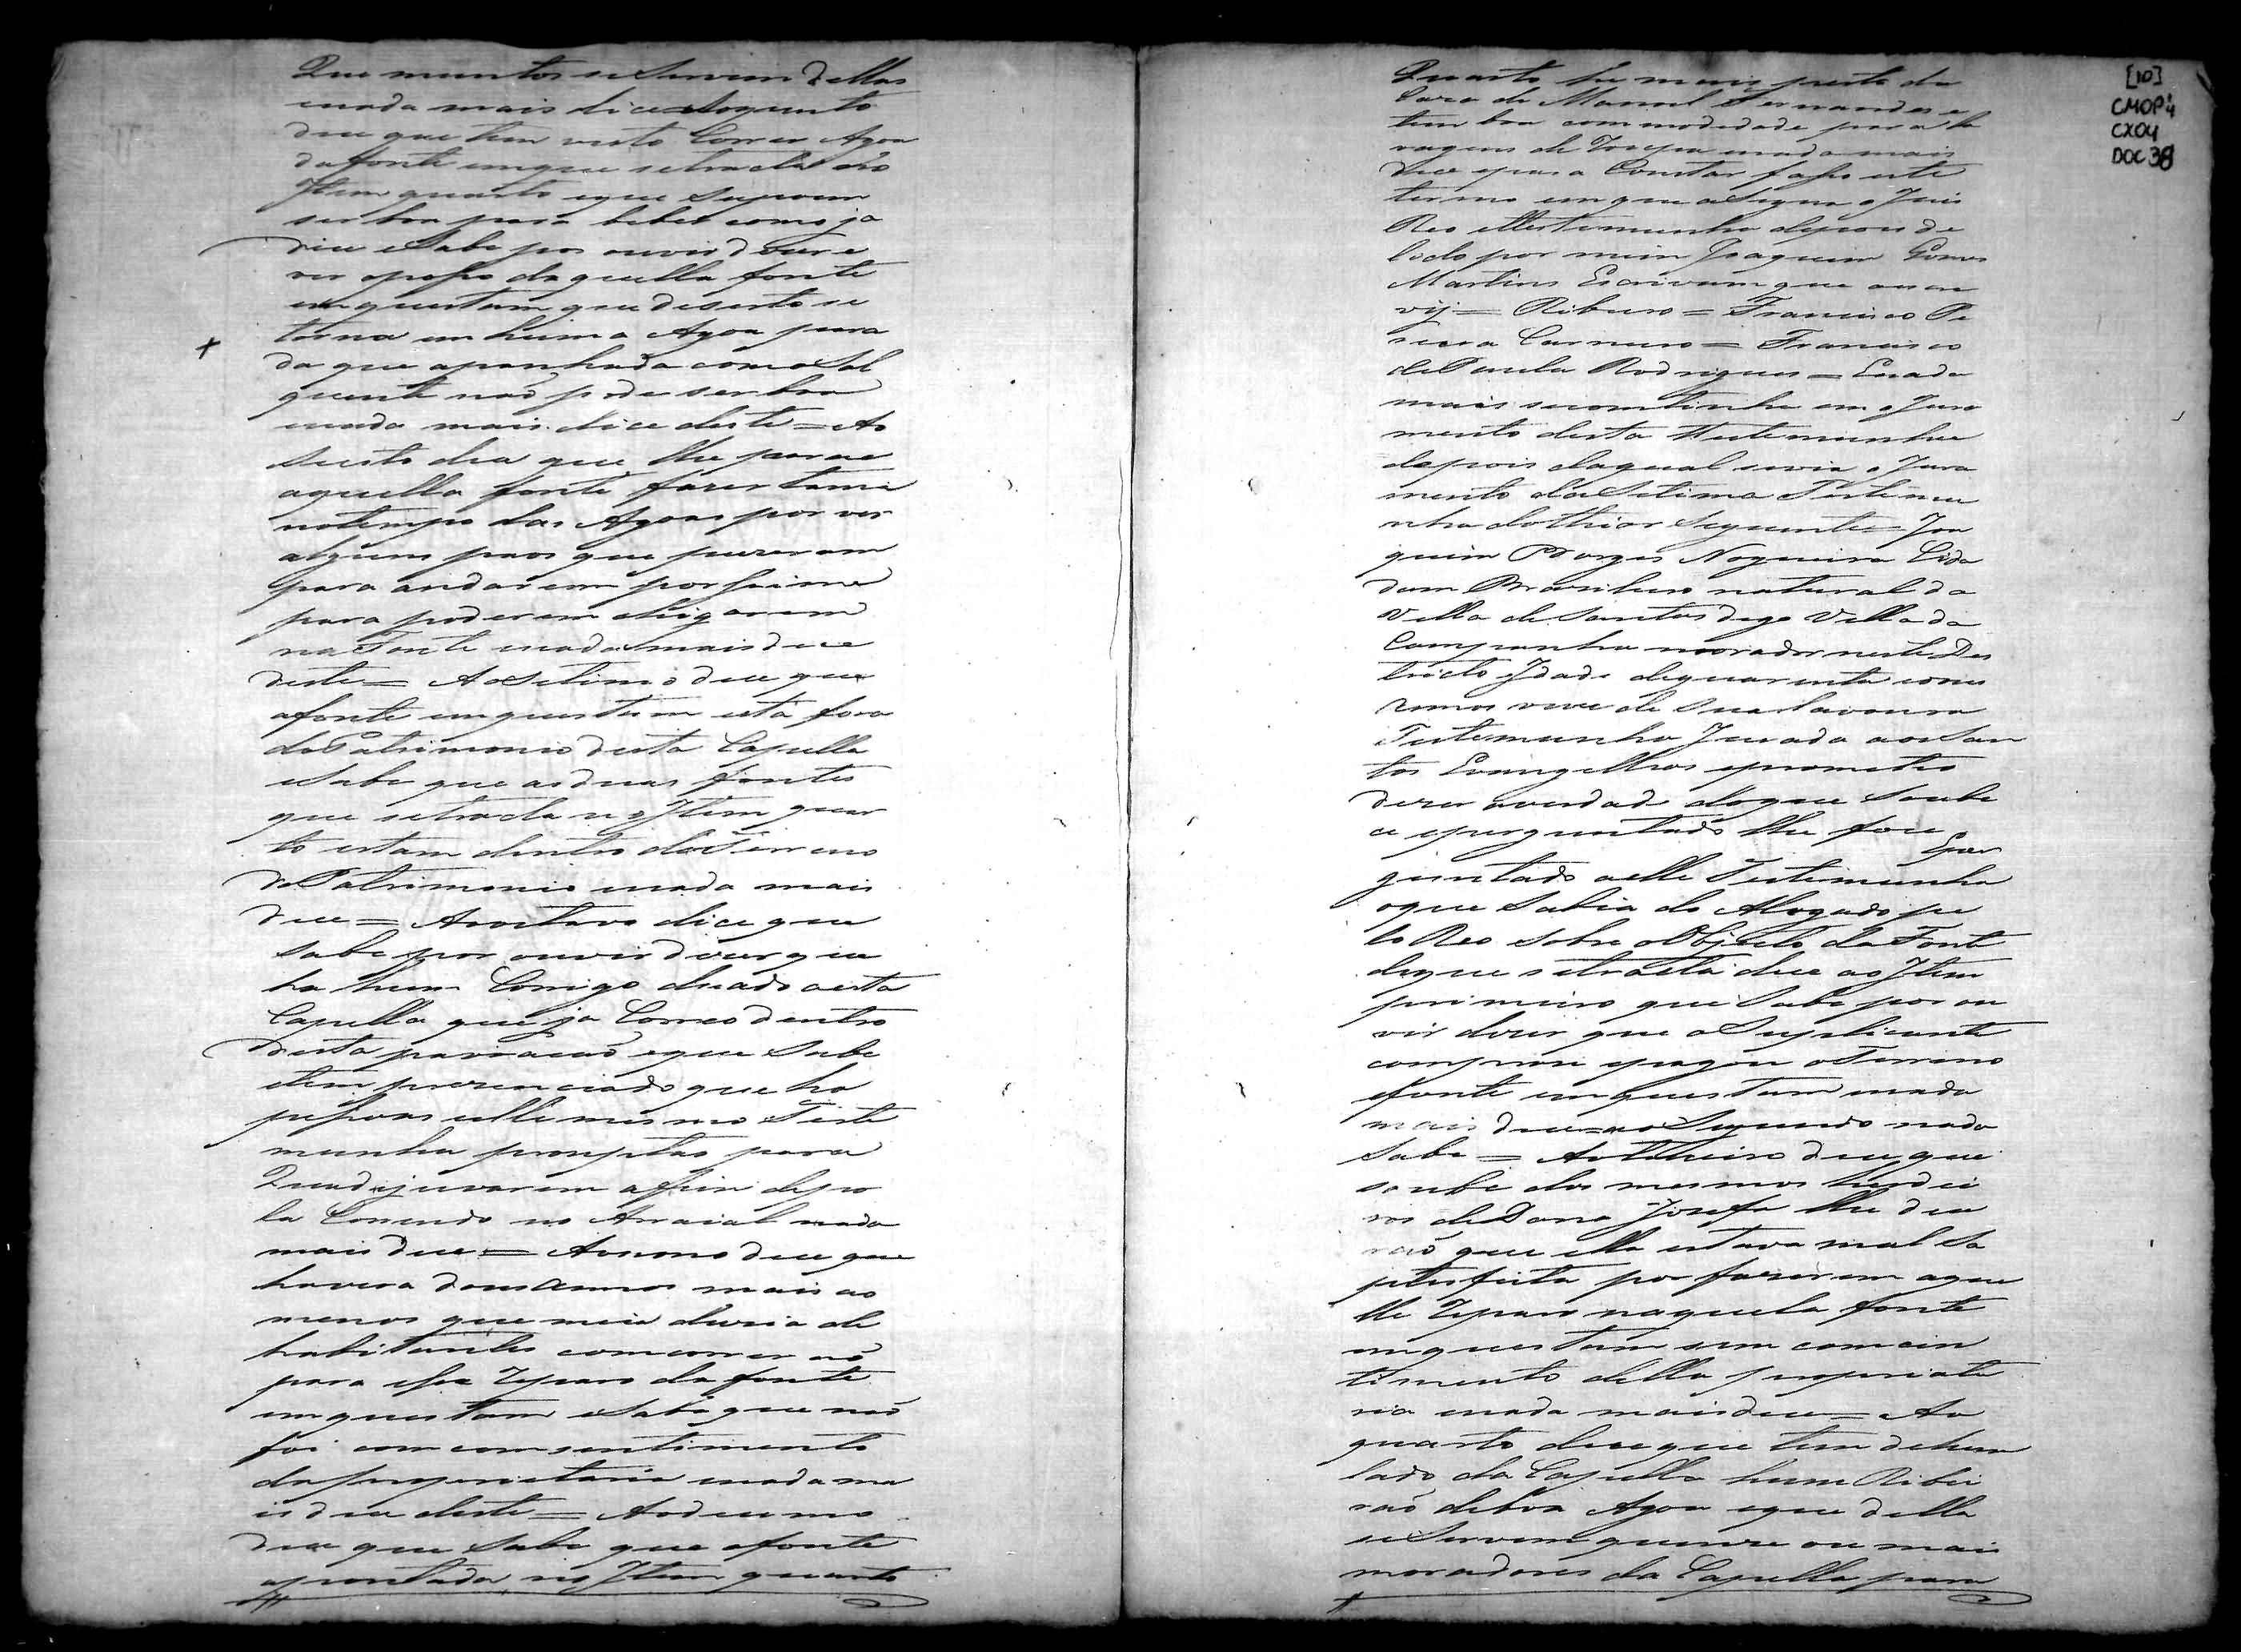 Que muintos se Servem Dellas
enada mais dice Aoquinto
dice que tem visto Correr Agoa
da fonte emque setracta no
Item quarto eque Supoem
ser boa para beber como ja
dice eSabe por ouvir dizer e
ver aposo daquella fonte
emquestam que deserto se
torna em huma Agoa para
da que apanhada como Sol
quente naõ pode ser boa
enada mais dice deste = Ao
Sexto diz que lhe parece
aquella fonte fazer lama
notempo das Agoas por ver
alguns paos que puzeram
para andarem por sima
para poderem chigarem
na Fonte enada mais dice
deste = Ao Setimo dice que
afonte emquestam está fora
do Patrimonio desta Capella
eSabe que as duas fontes
que setracta no Item quar
to estam dentro do Terreno
do Patrimonio enada mais
dice = Aooitavo dice que
sabe por ouvir dizer que
ha hum Corrigo doado a esta
Capella que ja Correo dentro
desta eque Sabe
etem prezenciado que ha
pesoas e elle mesmo Teste
munha promptas para
Quadijuvarem afim depo
la Correndo no Arraial nada
mais dice = Aonono dice que
havera dous annos mais ao
menos que meia duzia de
habitantes comcorreraõ
para esse Reparo da fonte
emquestam eSabe que naõ
foi com comsentimento
da proprietaria enada ma
is dice deste = Aodecimo
dice que Sabe que afonte
apontada no Item quarto
Quarto he mais perto da
Caza de Manoel Fernandes e
tem boa commodidade para la
vagens de Roupa enada mais
dice epara Constar faso este
termo emque aSigna o Juis
Reo eTestemunha depois de
lido por mim Joaquim Gomes
Martins Escrivam que o escre
vy = Ribeiro = Francisco Pe
reira Carneiro = Francisco
de Paula Rodrigues = Enada
mais secomtinha em o Jura
mento desta Testemunha
depois daqual se via o Jura
mento da Setima Testemu
nha do thior Seguinte = Joa
quim Borges Nogueira Cida
dam Brazileiro natural da
Villa de Santos digo Villa da
Campanha morador neste Des
tricto Idade de quarenta e
annos vive de Sua lavoura
Testemunha Jurada aos San
tos Evangelhos eprometeo
dizer averdade doque Soube
ce eperguntado lhe fose Eper
guntado a elle Testemunha
oque Sabia do Alegado pe
lo Reo Sobre o Objecto da Fonte
deque setracta dice ao Item
primeiro que Sabe por ou
vir dizer que o Suplicante
comprou epagou o Terreno
efonte emquestam enada
mais dice = ao Segundo nada
Sabe = Aoterceiro dice que
soube dos mesmos herdei
ros de Dona Josefa lhe dice
raõ que ella estava mal Sa
ptisfeita por fazerem aque
lle Reparo naquela fonte
emquestam sem comcen
timento della proprieta
ria enada mais dice = Ao
quarto dice que tem de hum
lado da Capella hum Ribei
raõ de boa Agoa eque della
se Servem quinze ou mais
moradores da Capella para
[10]
CMOP¹4
CX04
DOC 38